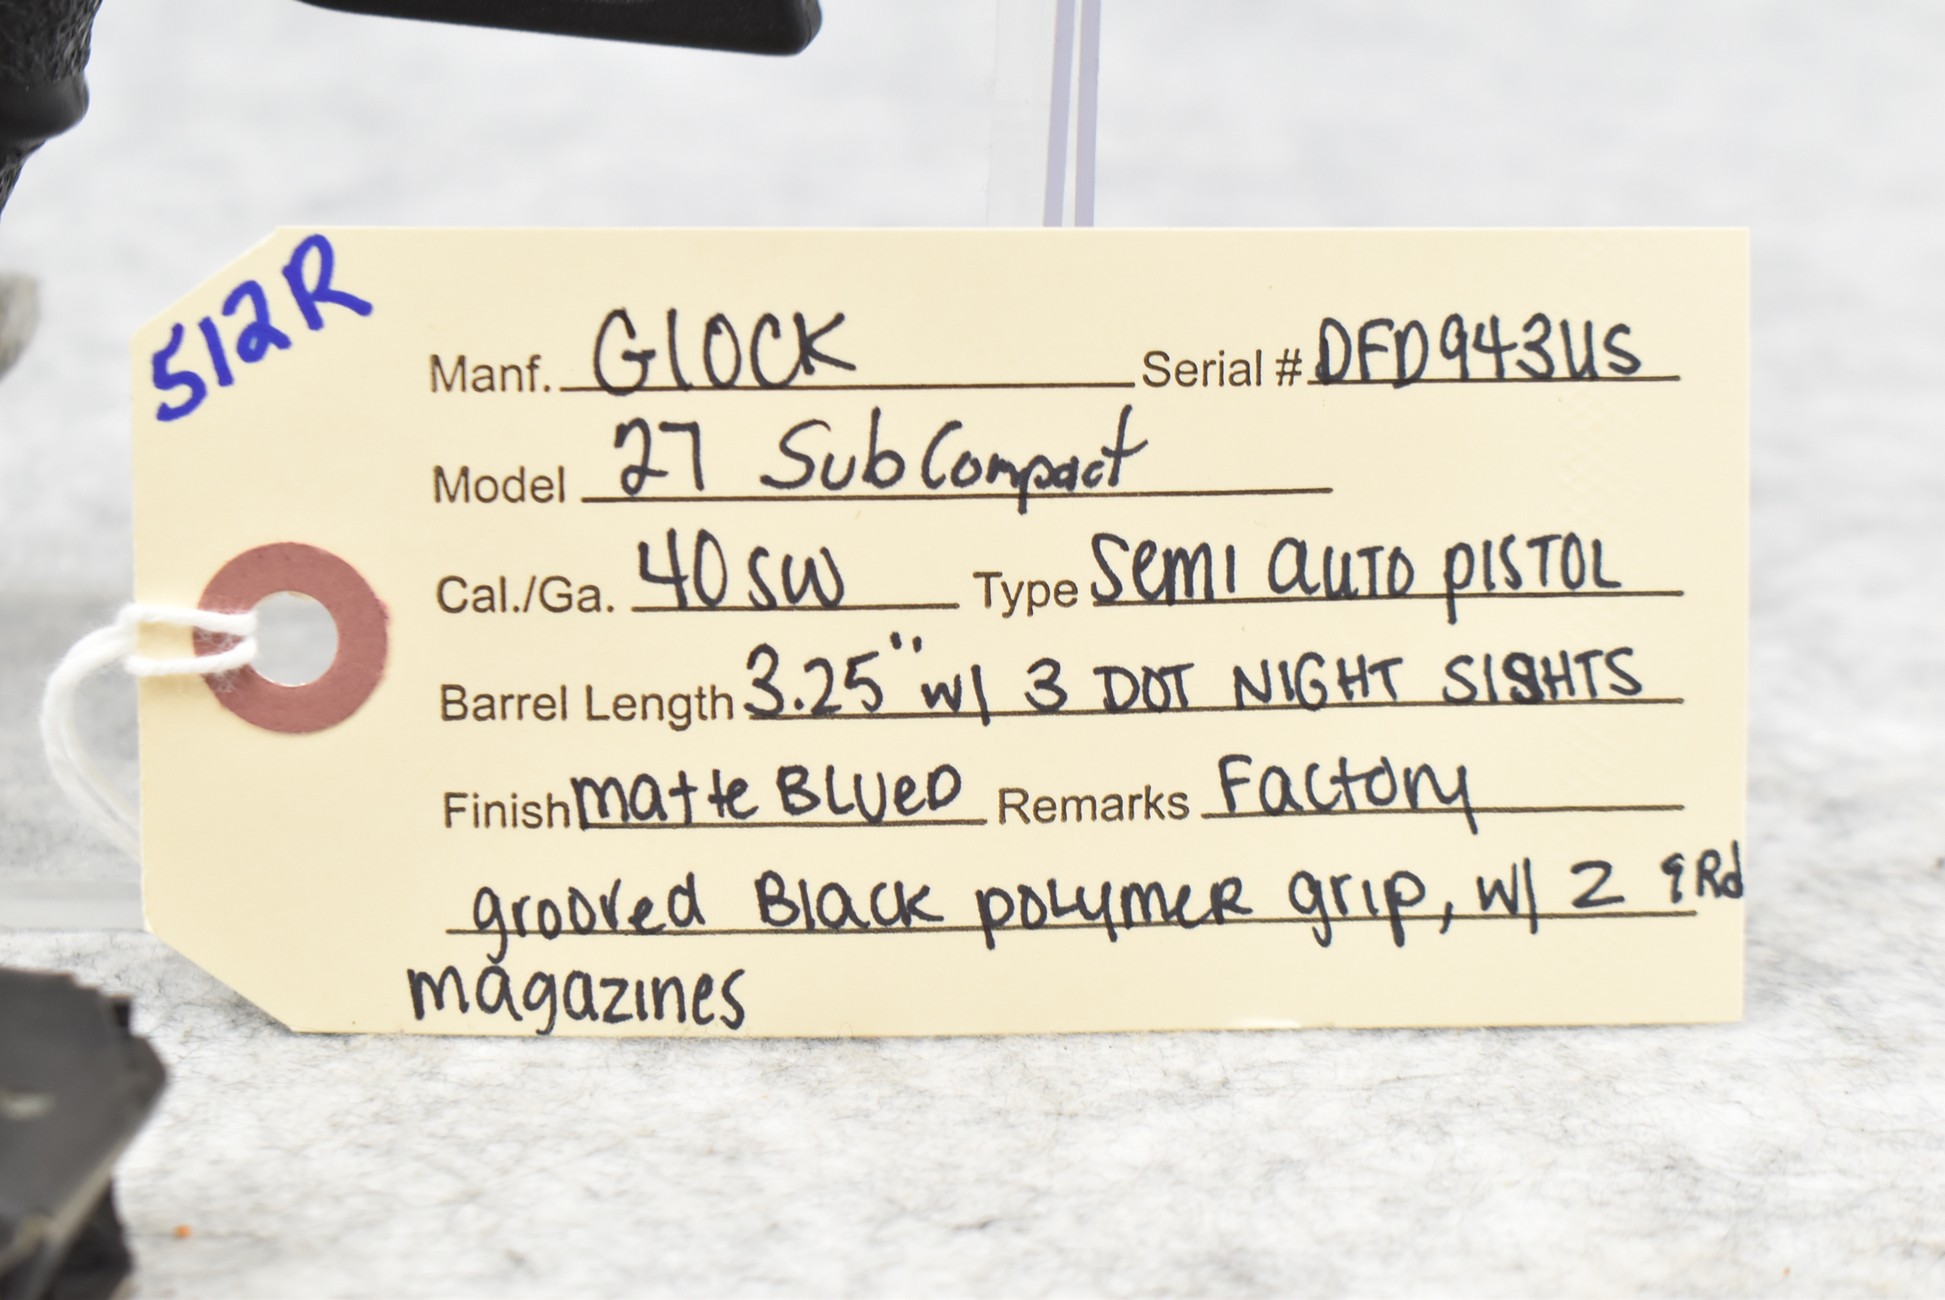 512R
Manf. GlOCK Serial # DFD943US
Model 27 SubCompact
Cal./Ga. 40 SW Type Semi AUTO PISTOL
Barrel Length 3.25" w/ 3 DOT NIGHT SIGHTS
Finish matte BLUeD Remarks Factory
grooved Black polymer grip, w/ 2 9Rd
magazines